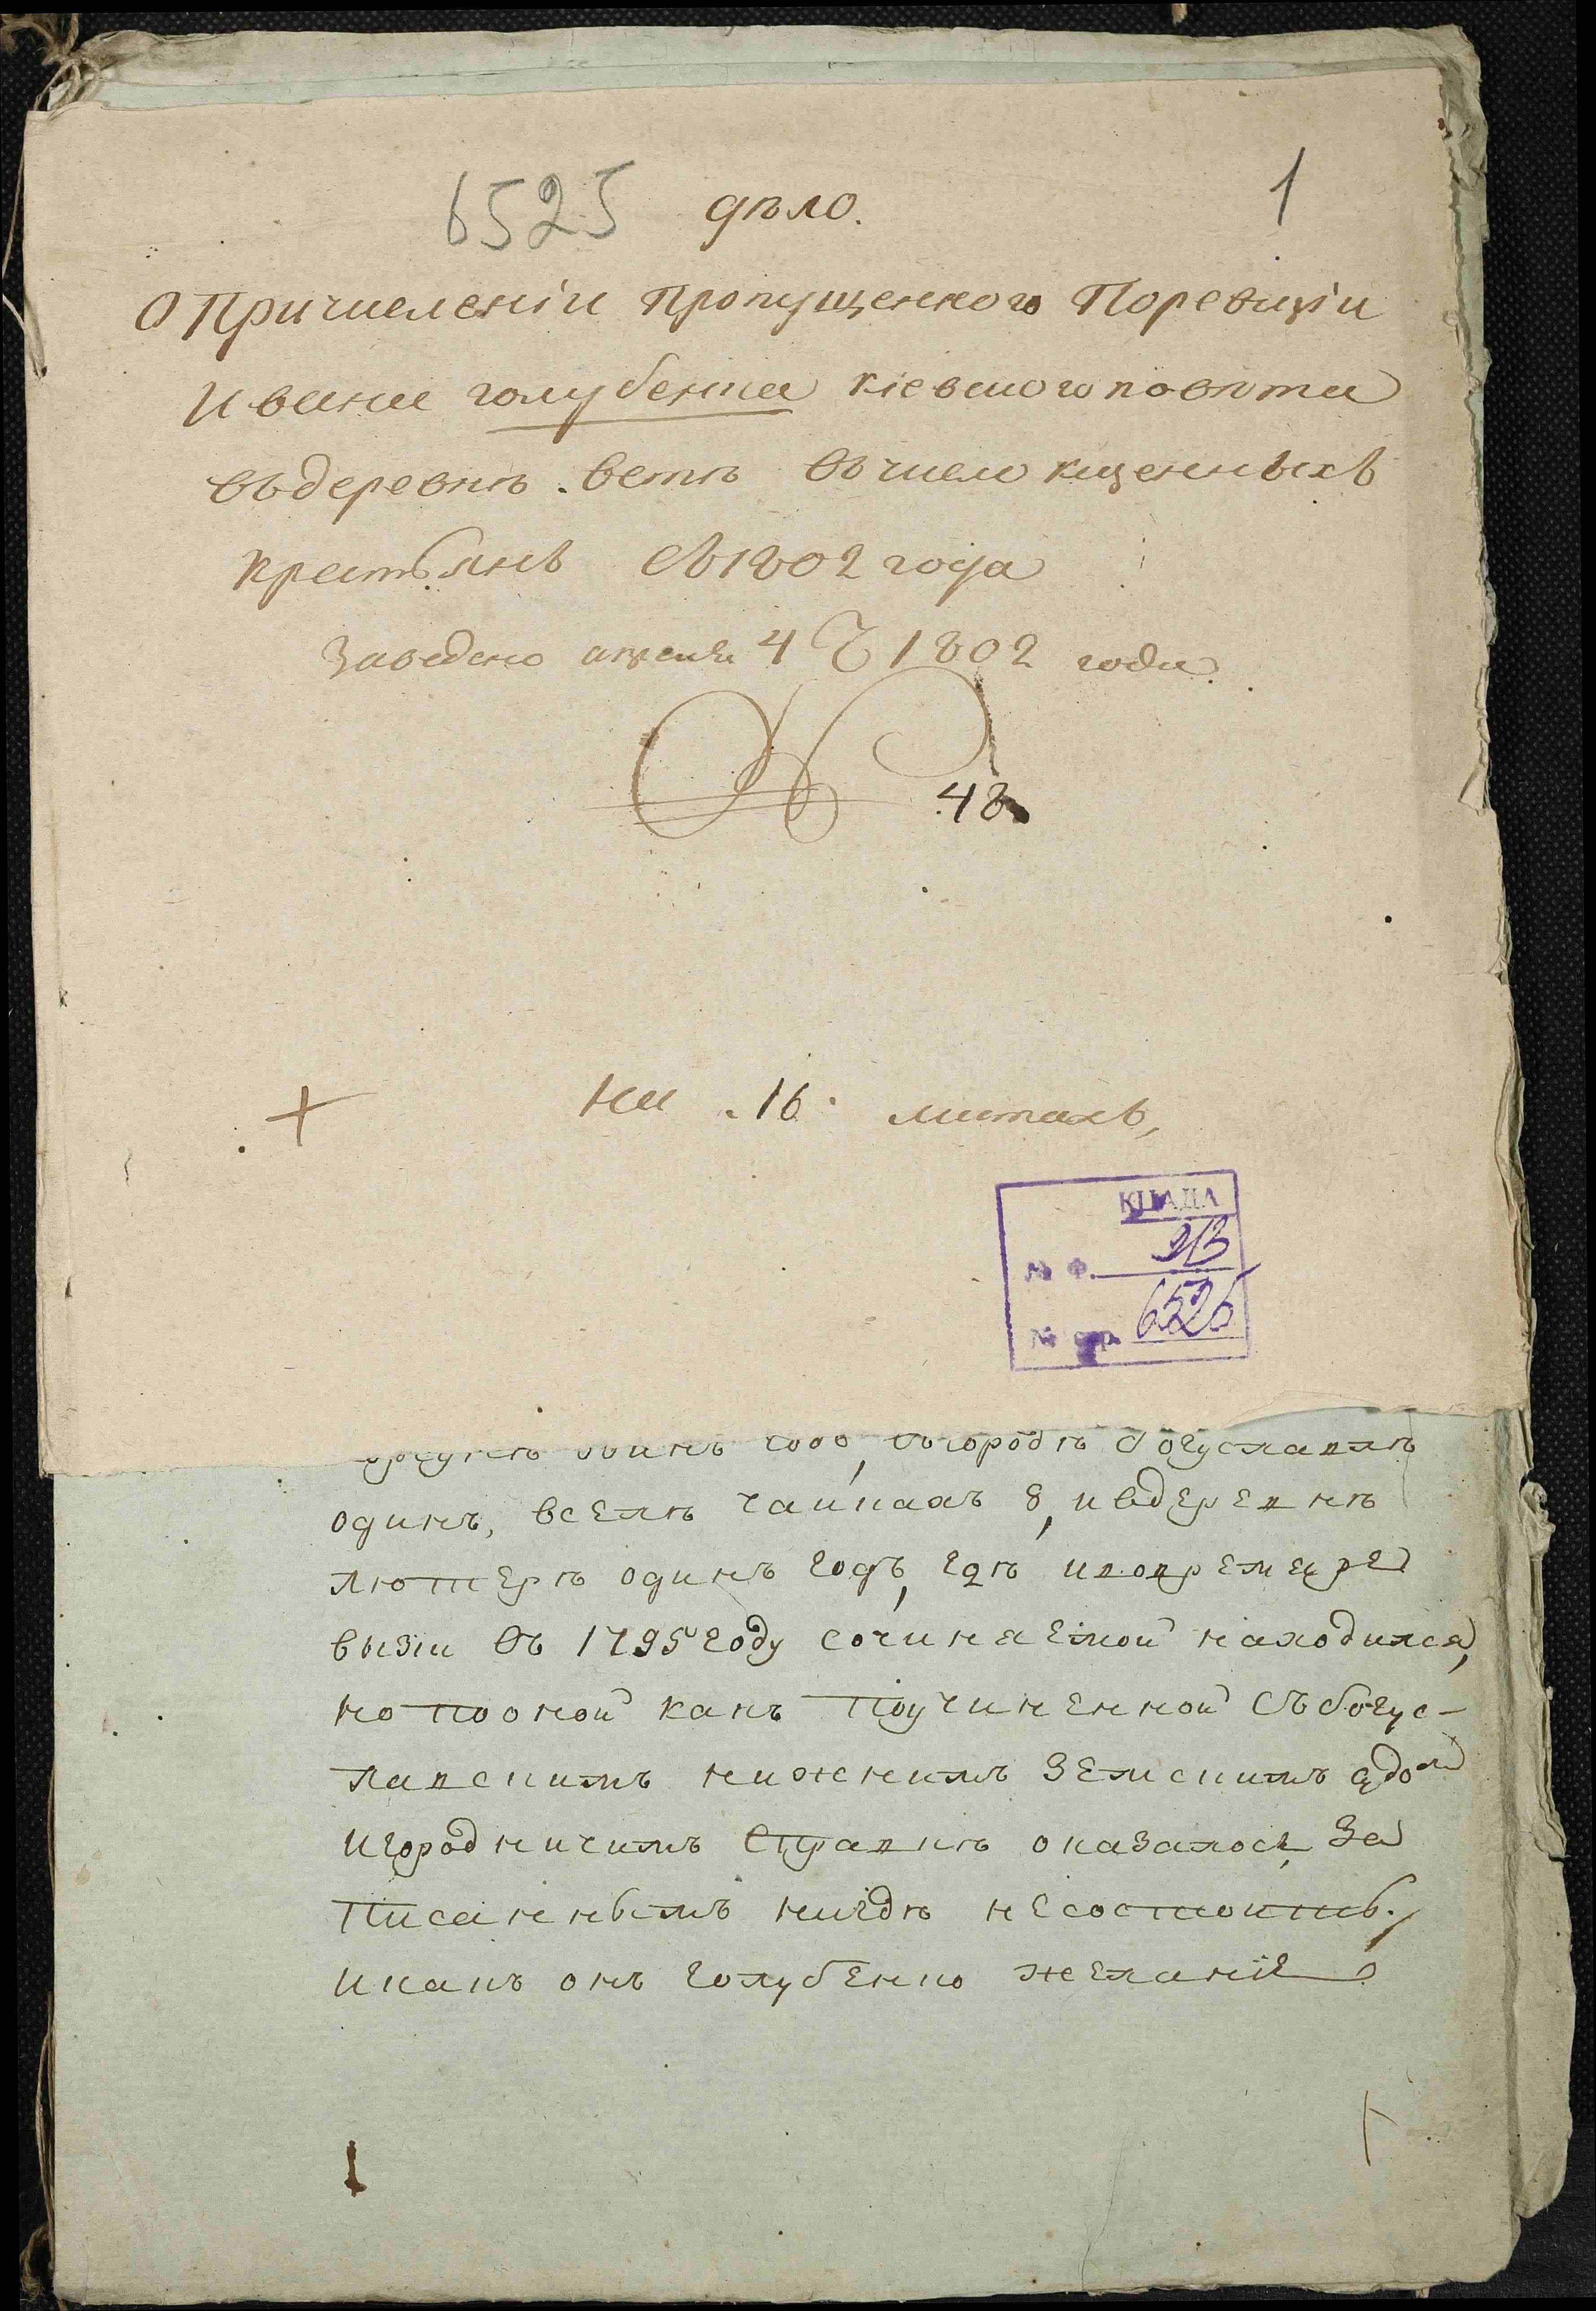 6525 дѣло. 1
О Причисленіи пропущенного Поревизіи
Ивана голубенка кіевского повѣта
въ деревнѣ ветѣ въ число казенныхъ
крестьянъ съ 1802 года
Заведено апреля 4 1802 года
48
На 16 листахъ,
КЦАДА
№ Ф.
6525
№
въ городѣ богуславлѣ
одинъ, в селѣ чайкахъ 8, и в деревнѣ
лютерѣ одинъ годъ, гдѣ и во время ре
визіи въ 1795 году сочиняемой находился,
но по оной какъ по учиненной съ богус-
лавскимъ нижнимъ земскимъ судомъ
и городничимъ справкѣ оказалось за
писаннымъ нигдѣ не состоитъ.
и какъ онъ голубенко желаніе